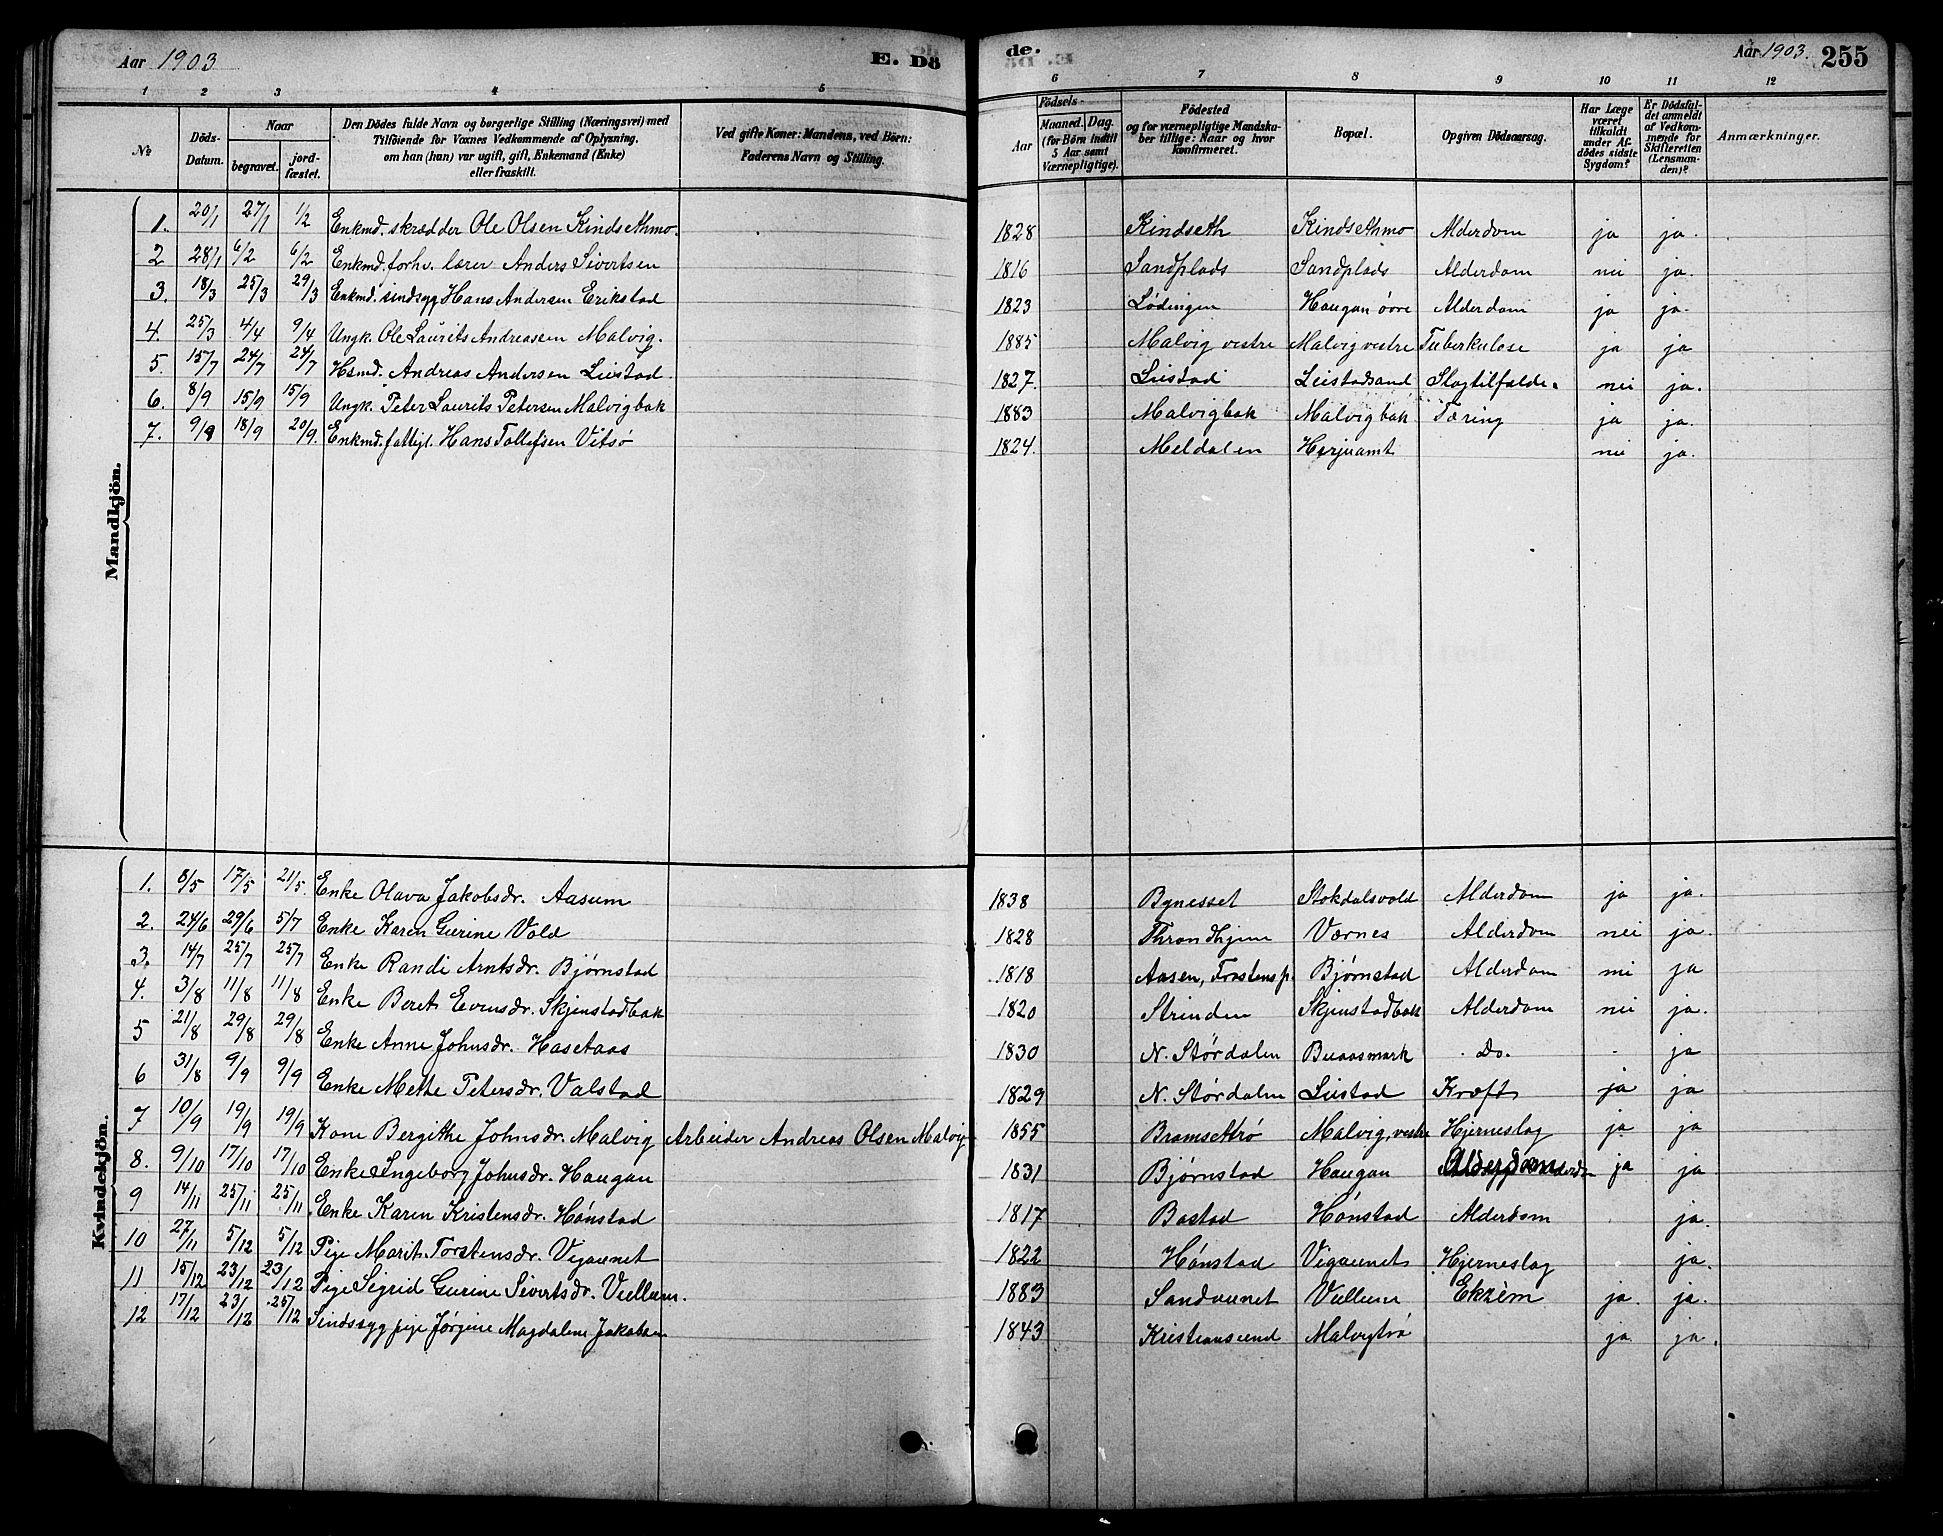 Aar 1903 E. Dö
de. Aar 1903. 255
1 2 3 4 5 6 7 8 9 10 11 12
No
Döds-Datum.
Naar
begravet.
jord-fæstet.
Den Dödes fulde Navn og borgerlige Stilling (Næringsvei) med
Tilföiende for Voxnes Vedkommende af Oplysning,
om han (hun) var ugift, gift, Enkemand (Enke)
eller fraskilt.
Ved gifte Koner: Mandens, ved Börn:
Faderens Navn og Stilling.
Födsels-
Aar
Maaned. Dag.
(for Börn indtil
5 Aar samt
Værnepligtige).
Födested
og for værnepligtige Mandska-
ber tillige: Naar og hvor
konfirmeret.
Bopæl.
Opgiven Dödsaarsag.
Har Læge
været
tilkaldt
under Af-
dödes sidste
Sygdom?
Er Dödsfal-
det anmeldt
af Vedkom-
mende for
Skifteretten
(Lensman-
den)?
Anmærkninger.
Mandkjön.
1. 20/1 27/1 1/2 Enkmd. skrædder Ole Olsen Kindsethmo. 1828 Kindseth Kindsethmo Alderdom ja ja.
2 28/1 6/2 6/2 Enkmd. forhv. lærer Anders Sivertsen 1816 Sandplads Sandplads Alderdom nei ja.
3. 18/3 25/3 29/3 Enkmd. sindsyg Hans Andersen Erikstad 1823 Lødingen Haugan övre Alderdom ja ja.
4. 25/3 4/4 9/4 Ungk. Ole Laurits Andreassen Malvig. 1885 Malvig vestre Malvig vestre Tuberkulose ja ja
5. 15/7 24/7 24/7 Hsmd. Andreas Andersen Leistad. 1827. Leistad Leistadsand Slagtilfælde. nei ja.
6. 8/9 15/9 15/9 Ungk. Peter Laurits Petersen Malvigbak 1883 Malvigbak Malvigbak Tæring ja ja.
7. 9/9 18/9 20/9. Enkmd. fattigl. Hans Tollefsen Vitsø 1824. Meldalen Herjuamt nei ja.
Kvindekjön.
1. 8/5 17/5 21/5. Enke Olava Jakobsdr. Aasum 1838 Bynesset Stokdalsvold Alderdom ja ja.
2. 24/6 29/6 5/7 Enke Karen Gurine Vold 1828 Throndhjem Værnes Alderdom nei ja.
3. 14/7 25/7 25/7 Enke Randi Arntsdr. Bjørnstad 1818 Aasen, Frostens p. Bjørnstad Alderdom nei ja
4. 3/8 11/8 11/8 Enke Beret Evensdr. Skjenstadbak 1820 Strinden Skjenstadbak Alderdom nei ja.
5 21/8 29/8 29/8 Enke Anne Johnsdr. Hasetaas 1830 N. Stördalen Buaasmark Do. ja
6 31/8 9/9 9/9 Enke Mette Petersdr. Valstad 1829 N. Stördalen Leistad Kræft ja ja
7 10/9 19/9 19/9 Kone Bergithe Johnsdr. Malvig Arbeider Andreas Olsen Malvig 1855 Bramsethrö Malvig, vestre Hjerneslag ja ja
8. 9/10 17/10 17/10 Enke Ingeborg Johnsdr. Haugan 1831 Bjørnstad Haugan Alderdom ja ja
9 14/11 25/11 25/11 Enke Karen Kristensdr. Hönstad 1817 Bostad Hönstad Alderdom ja.
10 27/11 5/12 5/12 Pige Marit Torstensdr. Vigaunet 1822 Hönstad Vigaunet Hjerneslag ja.
11. 15/12 23/12 23/12 Pige Sigrid Gurine Sivertsdr. Vullum. 1883 Sandaunet Vullum Ekzem ja. ja.
12 17/12 23/12 25/12 Sindssyg pige Jørgine Magdalene Jakobsen 1843 Kristianssund Malvigtrö ja ja.